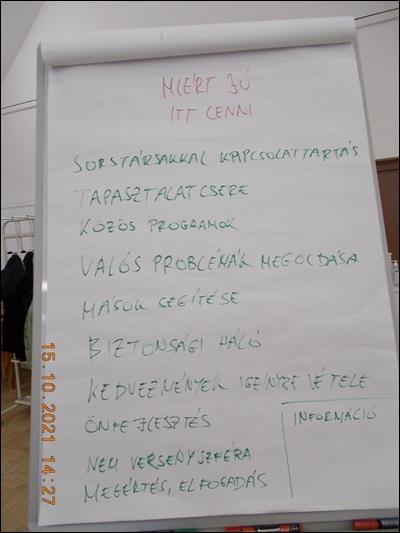 MIÉRT JÓ
ITT LENNI
SORSTÁRSAKKAL KAPCSOLATTARTÁS
TAPASZTALATCSERE
KÖZÖS PROGRAMOK
VALÓS PROBLÉMÁK MEGOLDÁSA
MÁSOK SEGÍTÉSE
BIZTONSÁGI HÁLÓ
KEDVEZMÉNYEK IGÉNYBE VÉTELE
ÖNFEJLESZTÉS
INFORMÁCIÓ
NEM VERSENYSZFÉRA
MEGÉRTÉS, ELFOGADÁS
15.10.2021 14:27